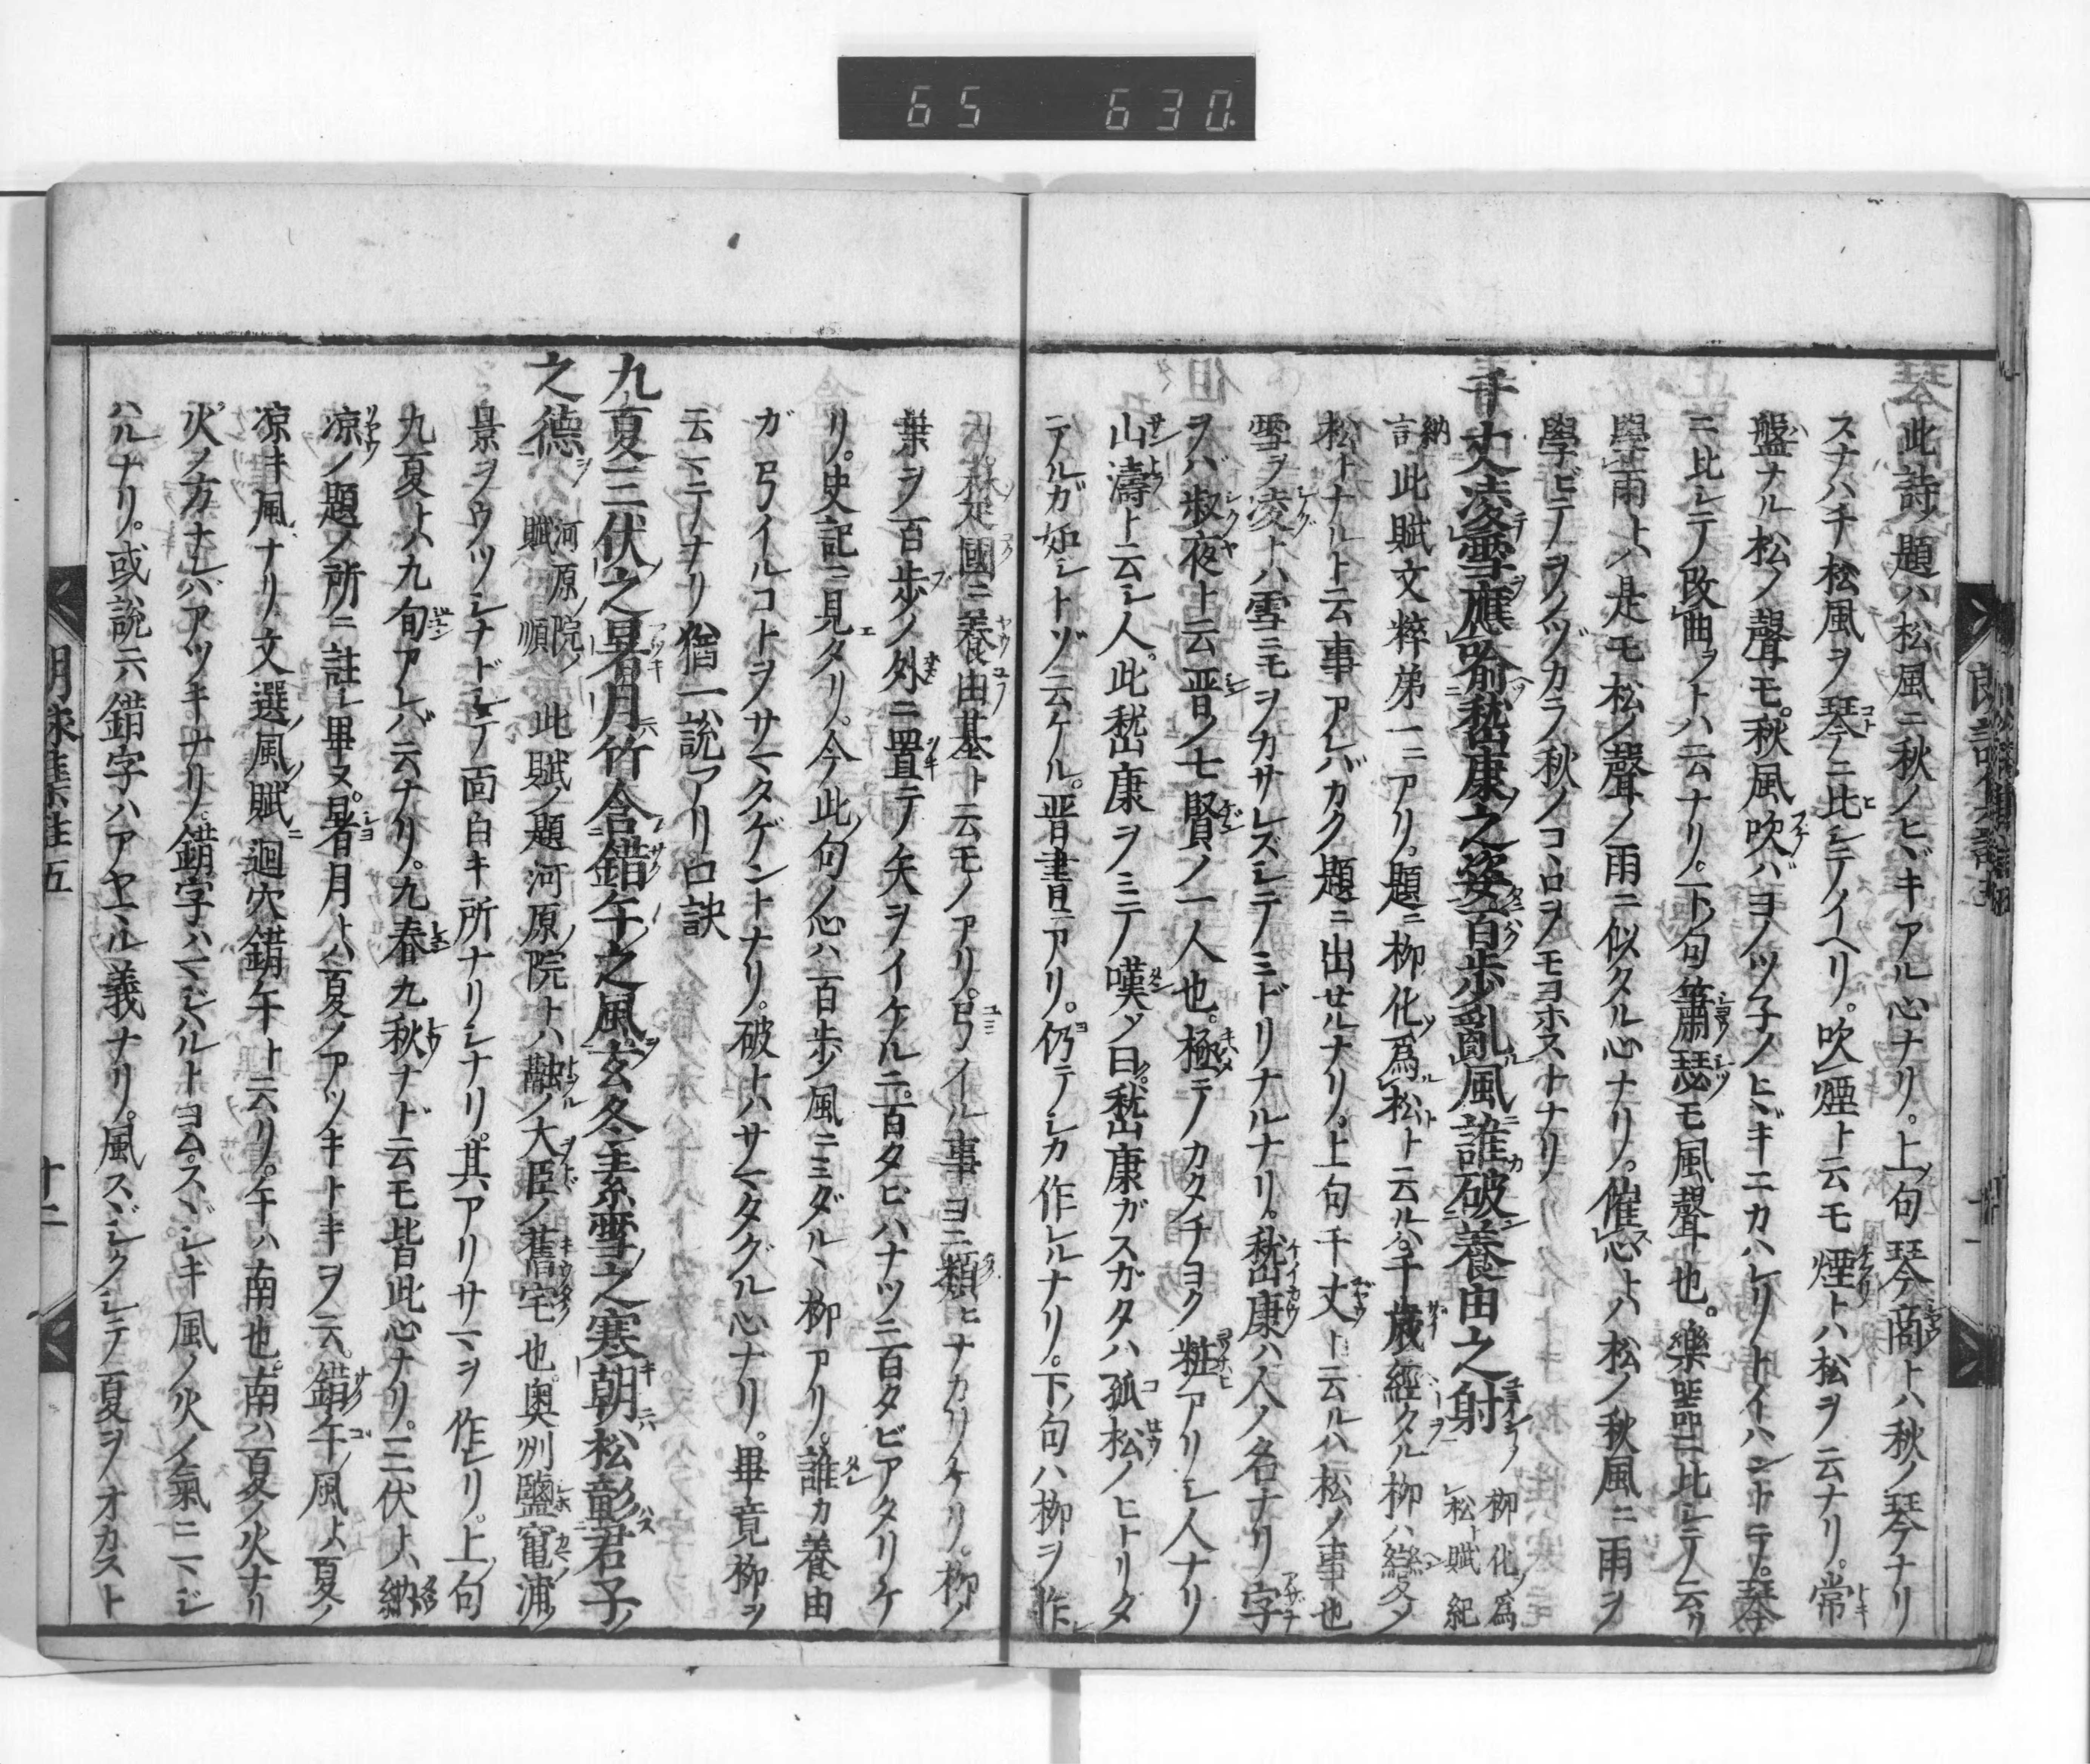 65 630.
此詩ノ題ハ松風ニ秋ノヒヾキアル心ナリ。上ノ句琴商トハ秋ノ琴ナリ
スナハチ松風ヲ琴ニ比シテイヘリ。吹煙ト云モ煙トハ松ヲ云ナリ。常
盤ナル松ノ聲モ。秋風吹バヨノツ子ノヒヾキニカハレリトイハントテ。琴
ニ比シテ改曲ヲトハ云ナリ。下ノ句簫瑟モ風聲也。樂噐ニ比シテ云リ
學雨トハ是モ松ノ聲ノ雨ニ似タル心ナリ。催心トハ松ノ秋風ニ雨ヲ
學ビテヲノヅカラ秋ノコヽロヲモヨホストナリ
千丈凌雪應喻嵆康之姿百歩亂風誰破養由之射 柳化爲松賦 紀
納言 此賦文粹第一ニアリ。題ニ柳化爲松ト云ルハ。千歳經タル柳ハ變ノ
松トナルト云事アレバカク題ニ出セルナリ。上句千丈ト云ルハ松ノ事也
雪ヲ凌トハ雪ニモヲカサレズシテミドリナルナリ。嵆康ハ人ノ名ナリ字
ヲバ叔夜ト云晋ノ七賢ノ一人也。極テカタチヨク粧アリシ人ナリ
山濤ト云シ人。此嵆康ヲミテ嘆ノ曰。嵆康ガスガタハ孤松ノヒトリタ
テルガ如シトゾ云ケル。晋書ニアリ。仍テシカ作レルナリ。下句ハ柳ヲ作レ
リ。楚國ニ養由基ト云モノアリ。弓イル事ヨニ類ヒナカリケリ。柳ノ
葉ヲ百歩ノ外ニ置テ矢ヲイケルニ。百タビハナツニ百タビアタリケ
リ。史記ニ見タリ。今此句ノ心ハ百歩ノ風ニミダルヽ柳アリ。誰カ養由
ガ弓イルコトヲサマタゲントナリ。破トハサマタグル心ナリ。畢竟柳ヲ
云マテナリ猶一說アリ口訣
九夏三伏之暑月竹含錯午之風玄冬素雪之寒朝松彰君子
之德 河原院賦 順 此賦ノ題河原ノ院トハ融ノ大臣ノ舊宅也。奥州鹽竃ノ浦ノ
景ヲウツシナドシテ面白キ所ナリシナリ。其アリサマヲ作レリ。上ノ句
九夏トハ九旬アレバ云ナリ。九春九秋ナド云モ皆此心ナリ。三伏トハ納
凉ノ題ノ所ニ註シ畢ヌ。暑月トハ夏ノアツキトキヲ云。錯午ノ風トハ夏ノ
凉キ風ナリ文選ノ風ノ賦ニ迴穴錯午ト云リ。午ハ南也。南ハ夏ノ火ナリ
火ノ方ナレバアツキナリ。錯字ハマジハルトヨム。スヾシキ風ノ火ノ氣ニマジ
ハルナリ。或說ニハ錯字ハアヤマル義ナリ。風スヾシクシテ夏ヲオカスト
朗詠集註五
十二